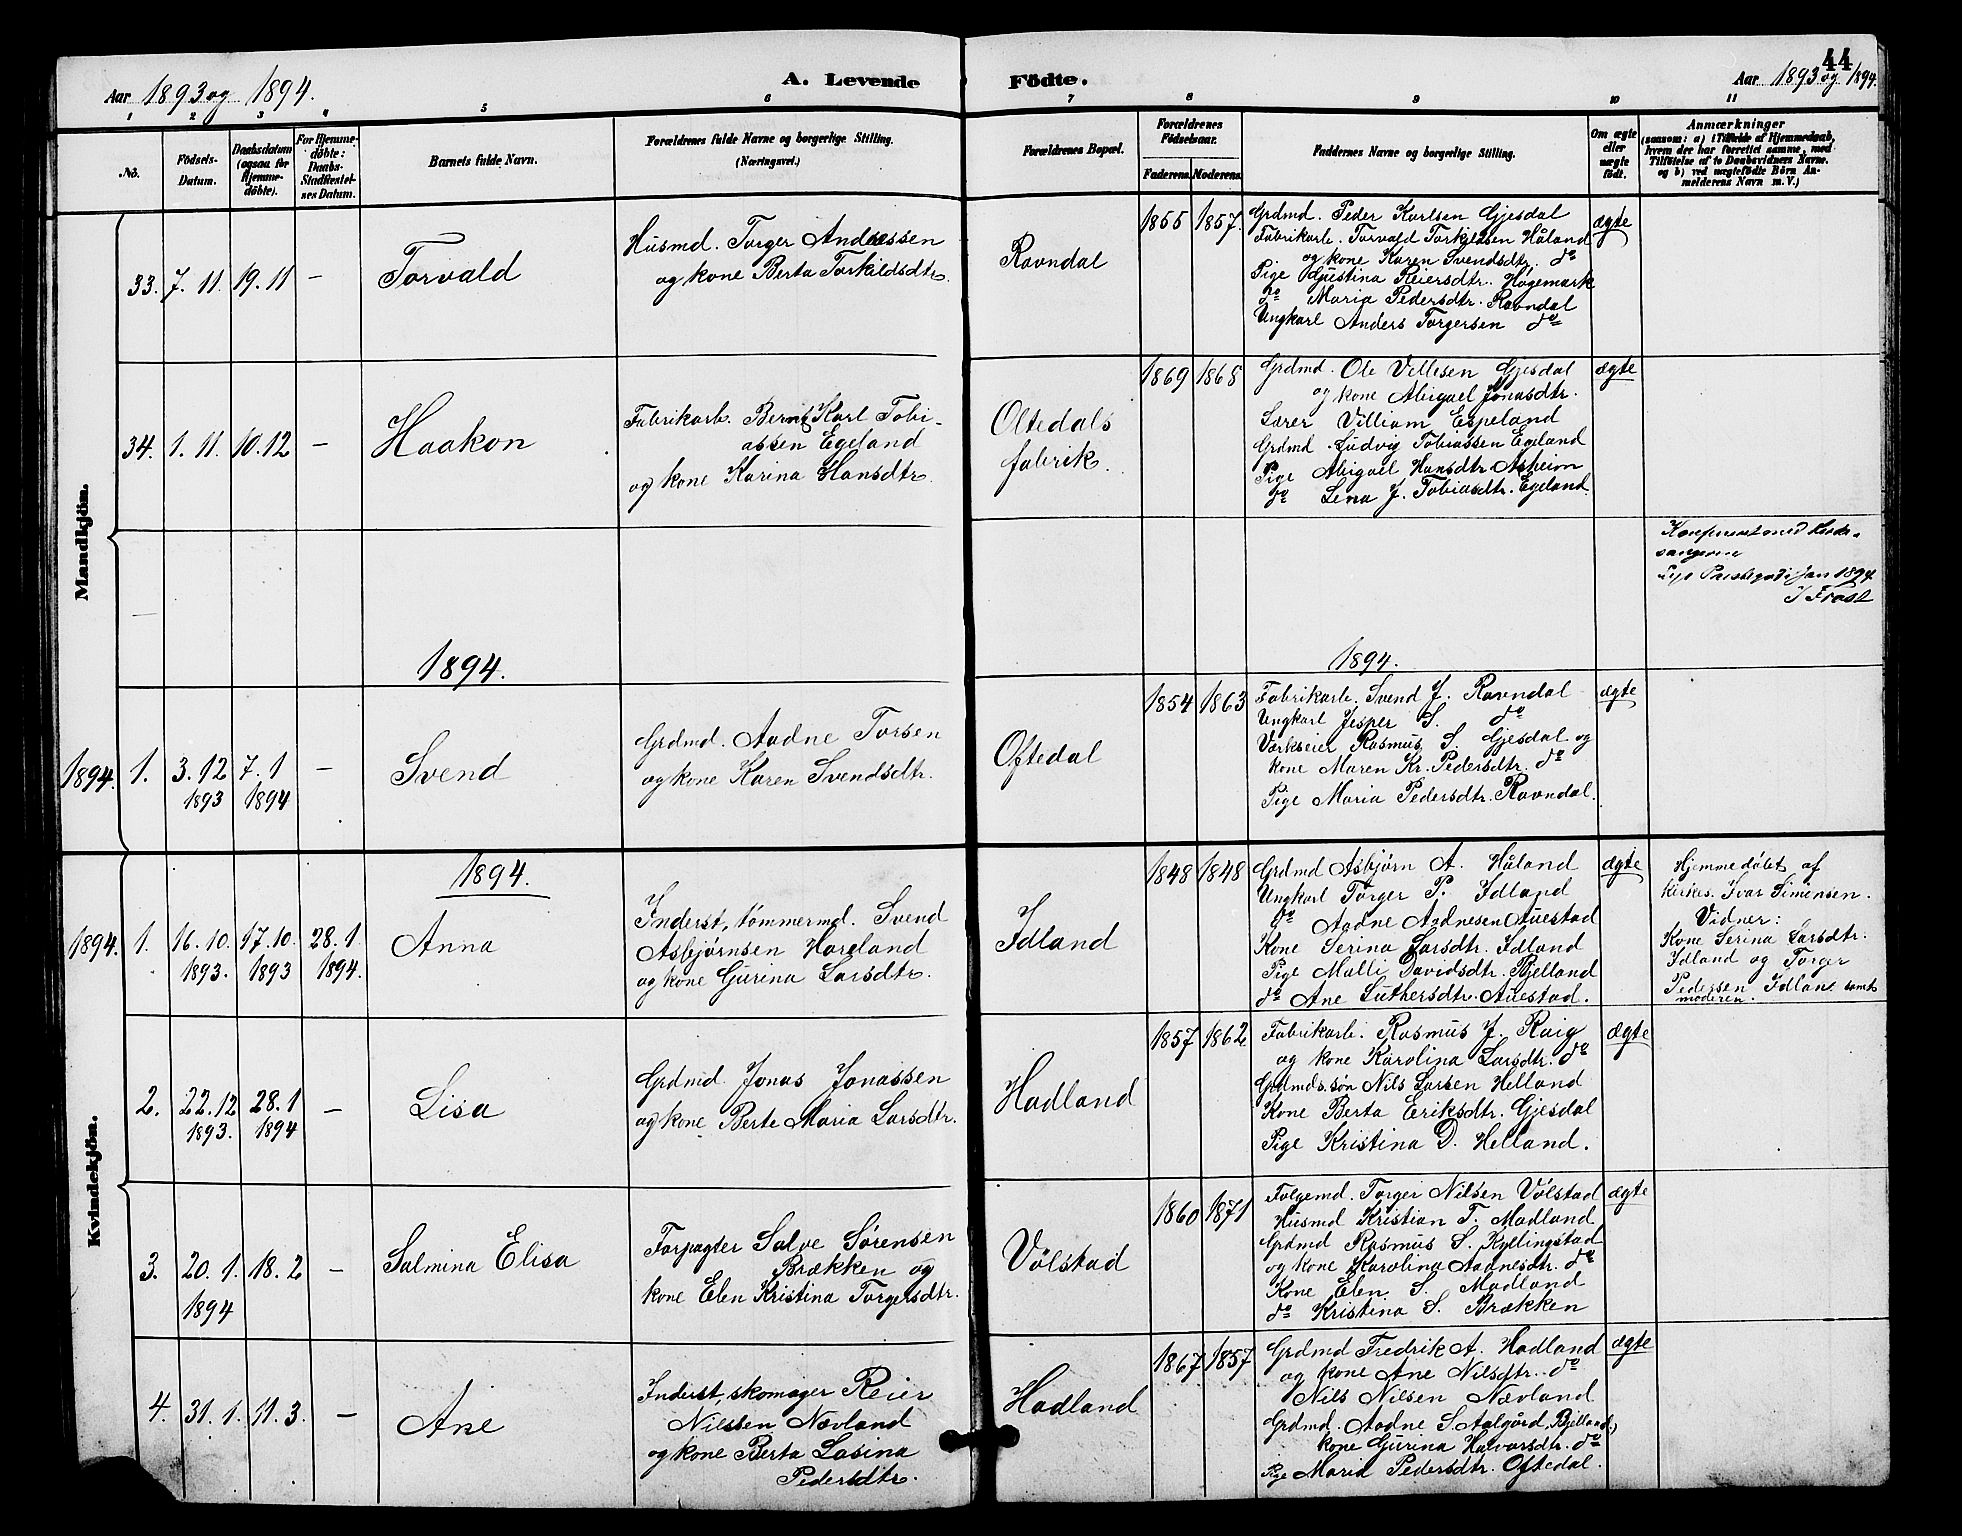 44
Aar 1893 og 1894.
A. Levende Födte.
Aar 1893 og 1894.
1 2 3 4 5 6 7 8 9 10 11
No.
Födsels-Datum.
Daabsdatum (ogsaa for Hjemme-döbte).
For Hjemme-döbte: Daabs-Stadfæstel-ses Datum.
Barnets fulde Navn.
Forældrenes fulde Navne og borgerlige Stilling.
(Næringsvei.)
Forældrenes Bopæl.
Forældrenes Födselsaar.
Faderens. Moderens.
Faddernes Navne og borgerlige Stilling.
Om ægte eller uægte födt.
Anmærkninger
(saasom: a) i Tilfælde af Hjemmedaab,
hvem der har forrettet samme, med
Tilföielse af to Daabsvidners Navne.
og b) ved uægtefödte Börn An-
melderens Navn m. V.)
Mandkjön.
33. 7. 11. 19. 11 — Torvald
Husmd. Torger Andressen
og kone Berta Torkildsdtr.
Ravndal
1855 1857.
Grdmd. Peder Karlsen Gjesdal
Fabrikarb. Torvald Torkildsen Håland
og kone Karen Svendsdtr. do
Pige Gjustina Reiersdtr. Høgemark
do Maria Pedersdtr. Ravndal
Ungkarl Anders Torgersen do
ægte
34. 1. 11. 10. 12 — Haakon
Fabrikarb. Bernt Karl Tobi-
assen Egeland
og kone Karina Hansdtr.
Oltedals
fabrik.
1869 1868
Grdmd. Ole Villesen Gjesdal
og kone Abigael Jonasdtr.
Lærer Villiam Espeland
Grdmd. Ludvig Tobiassen Egeland
Pige Abigael Hansdtr. Asheim
do Lena J. Tobiasdtr. Egeland
ægte
Jan 1894
1894.
1894.
1894. 1. 3. 12 1893 7. 1 1894 — Svend
Grdmd. Aadne Torsen
og kone Karen Svendsdtr.
Oftedal
1854 1863
Fabrikarb. Svend J. Ravndal
Ungkarl Jesper S. do
Værkseier Rasmus S. Gjesdal og
kone Maren Kr. Pedersdtr. do
Pige Maria Pedersdtr. Ravndal.
ægte
Kvindekjön.
1894.
1894. 1. 16. 10. 1893. 17. 10. 1893 28. 1 1894. Anna
Inderst, tømmermd. Svend
Asbjørnsen Haveland
og kone Gurina Larsdtr.
Idland
1848 1848
Grdmd Asbjørn A. Håland
Ungkarl Torger P. Idland
do Aadne Aadnesen Auestad
Kone Serina Larsdtr. Idland
Pige Malli Davidsdtr. Bjelland
do Ane Luthersdtr. Auestad.
ægte
Hjemmedøbt af
kirkes. Ivar Simensen.
Vidner:
Kone Serina Larsdtr.
Idland og Torger
Pedersen Idlan. samt
moderen.
2. 22. 12 1893. 28. 1 1894 — Lisa
Grdmd. Jonas Jonassen
og kone Berte Maria Larsdtr.
Hadland
1857 1862
Fabrikarb. Rasmus J. Raig
og kone Karolina Larsdtr. do
Grdmds. søn Nils Larsen Helland
Kone Berta Eriksdtr. Gjesdal
Pige Kristina D. Helland.
ægte
3. 20. 1. 1894 18. 2 — Salmina Elisa
Forpagter Salve Sørensen
Brækken og
kone Elen Kristina Torgersdtr.
Vølstad
1860 1871
Følgemd. Torger Nilsen Vølstad
Husmd Kristian T. Madland
Grdmd Rasmus S. Kyllingstad
og kone Karolina Aadnesdtr. do
Kone Elen S. Madland
do Kristina S. Brækken
ægte
4. 31. 1. 11. 3. — Ane
Inderst, skomager Reier
Nilssen Nævland
og kone Berta Lasina
Pedersdtr.
Hadland
1867 1857
Grdmd Fredrik A. Hadland
og kone Ane Nilsdtr. do
Nils Nilsen Nævland
Grdmd. Aadne S. Aalgård, Bjelland,
kone Gurina Halvarsdtr. do
Pige Maria Pedersdtr. Oftedal.
ægte